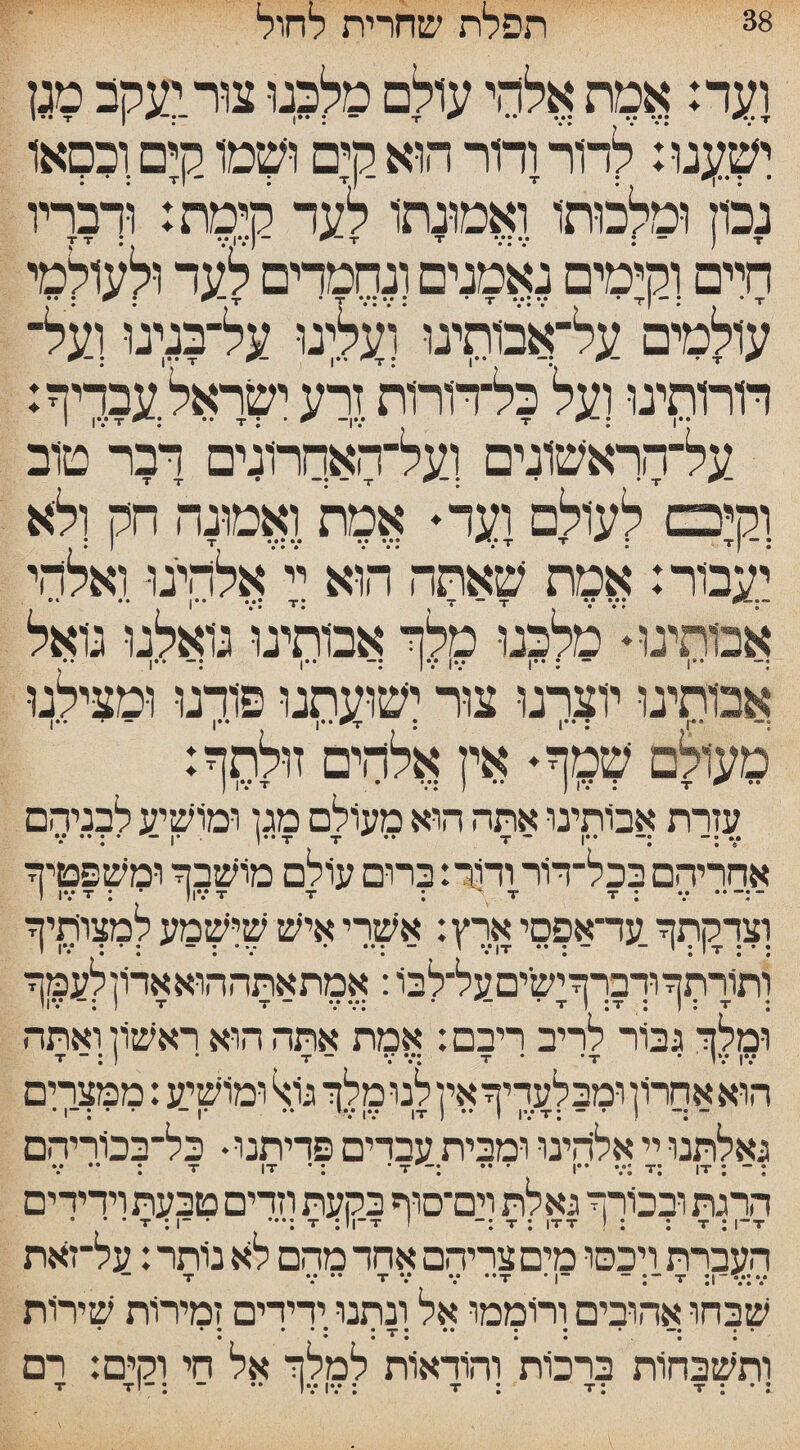 38 תפלת שחרית לחול
וָעֶד: אֱמֶת אֱלֹהֵי עוֹלָם מַלְכֵּנוּ צוּר יַעֲקֹב מָגֵן
יִשְׁעֵנוּ: לְדוֹר וָדוֹר הוּא קַיָּם וּשְׁמוֹ קַיָּם וְכִסְאוֹ
נָכוֹן וּמַלְכוּתוֹ וֶאֱמוּנָתוֹ לָעַד קַיֶּמֶת: וּדְבָרָיו
חָיִים וְקַיָּמִים נֶאֱמָנִים וְנֶחֱמָדִים לָעַד וּלְעוֹלְמֵי
עוֹלָמִים עַל־אֲבוֹתֵינוּ וְעָלֵינוּ עַל־בָּנֵינוּ וְעַל־
דּוֹרוֹתֵינוּ וְעַל כָּל־דּוֹרוֹת זֶרַע יִשְׂרָאֵל עֲבָדֶיךָ:
עַל־הָרִאשׁוֹנִים וְעַל־הָאַחֲרוֹנִים דָּבָר טוֹב
וְקַיָּם לְעוֹלָם וָעֶד· אֱמֶת וֶאֱמוּנָה חֹק וְלֹא
יַעֲבוֹר: אֱמֶת שָׁאַתָּה הוּא יְיָ אֱלֹהֵינוּ וֵאלֹהֵי
אֲבוֹתֵינוּ· מַלְכֵּנוּ מֶלֶךְ אֲבוֹתֵינוּ גּוֹאֲלֵנוּ גּוֹאֵל
אֲבוֹתֵינוּ יוֹצְרֵנוּ צוּר יְשׁוּעָתֵנוּ פּוֹדֵנוּ וּמַצִּילֵנוּ
מֵעוֹלָם שְׁמֶךָ· אֵין אֱלֹהִים זוּלָתֶךָ:
עֶזְרַת אֲבוֹתֵינוּ אַתָּה הוּא מֵעוֹלָם מָגֵן וּמוֹשִׁיעַ לִבְנֵיהֶם
אַחֲרֵיהֶם בְּכָל־דּוֹר וָדוֹר: בְּרוּם עוֹלָם מוֹשָׁבֶךָ וּמִשְׁפָּטֶיךָ
וְצִדְקָתְךָ עַד־אַפְסֵי אָרֶץ: אַשְׁרֵי אִישׁ שֶׁיִּשְׁמַע לְמִצְוֹתֶיךָ
וְתוֹרָתְךָ וּדְבָרְךָ יָשִׂים עַל־לִבּוֹ: אֱמֶת אַתָּה הוּא אָדוֹן לְעַמֶּךָ
וּמֶלֶךְ גִּבּוֹר לָרִיב רִיבָם: אֱמֶת אַתָּה הוּא רִאשׁוֹן וְאַתָּה
הוּא אַחֲרוֹן וּמִבַּלְעָדֶיךָ אֵין לָנוּ מֶלֶךְ גּוֹאֵל וּמוֹשִׁיעַ: מִמִּצְרַיִם
גְּאַלְתָּנוּ יְיָ אֱלֹהֵינוּ וּמִבֵּית עֲבָדִים פְּדִיתָנוּ· כָּל־בְּכוֹרֵיהֶם
הָרַגְתָּ וּבְכוֹרְךָ גָּאָלְתָּ וְיַם־סוּף בָּקַעְתָּ וְזֵדִים טִבַּעְתָּ וִידִידִים
הֶעֱבַרְתָּ וַיְכַסּוּ מַיִם צָרֵיהֶם אֶחָד מֵהֶם לֹא נוֹתָר: עַל־זֹאת
שִׁבְּחוּ אֲהוּבִים וְרוֹמְמוּ אֵל וְנָתְנוּ יְדִידִים זְמִירוֹת שִׁירוֹת
וְתִשְׁבָּחוֹת בְּרָכוֹת וְהוֹדָאוֹת לְמֶלֶךְ אֵל חַי וְקַיָּם: רָם